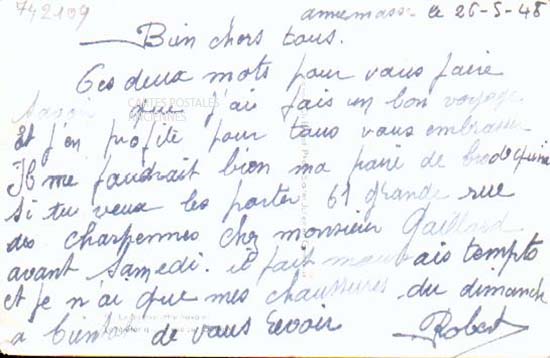 742109
annemasse le 26-5-48
Bien chers tous.
Ces deux mots pour vous faire
savoir que j'ai fais un bon voyage
CARTES POSTALES
ANCIENNES
et j'en profite pour tous vous embrasser
Il me faudrait bien ma paire de brodequins
si tu veux les porter 61 grande rue
des charpennes chez monsieur Gaillard
avant Samedi. il fait mauvais tempts
et je n'ai que mes chaussures du dimanche
a bientot de vous revoir
Robert